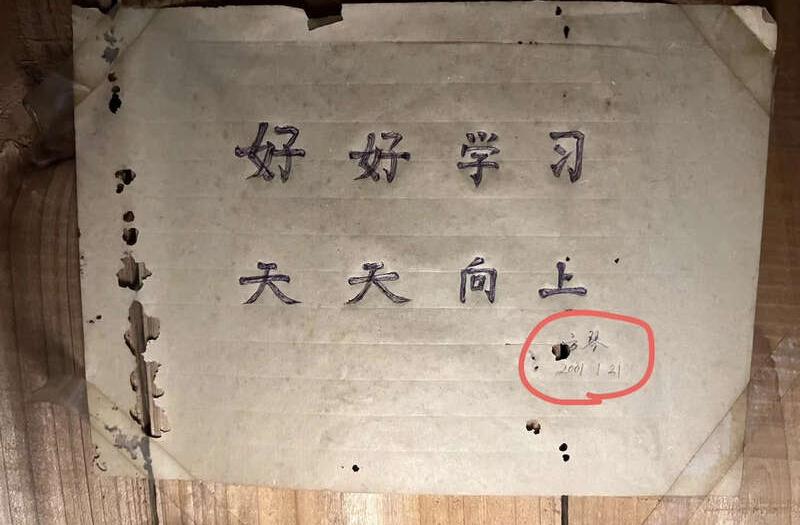 好好学习
天天向上
琴
2001 1 21